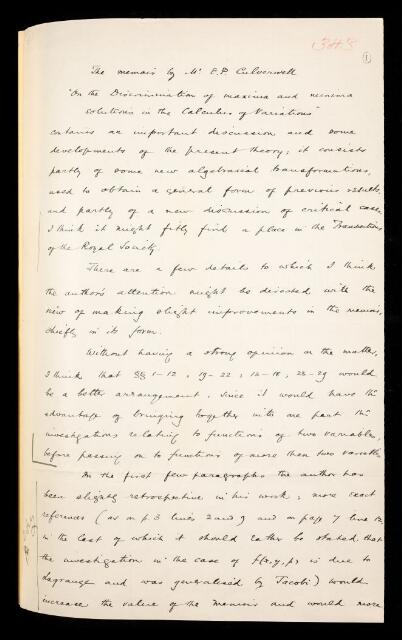 343
1
The memoir by Mr E.P. Culverwell
"On the Discrimination of maxima and minima
solutions in the Calculus of Variations"
contains an important discussion and some
developments of the present theory; it consists
partly of some new algebraical transformations,
used to obtain a general form of previous results,
and partly of a new discussion of critical cases.
I think it might fitly find a place in the Transactions
of the Royal Society.
There are a few details to which I think
the author's attention might be directed with the
view of making slight improvements in the memoir,
chiefly in its form.
Without having a strong opinion on the matter,
I think that §§ 1-12, 19-22, 14-18, 23-29 would
be a better arrangement, since it would have the
advantage of bringing together into one part the
investigations relating to functions of two variables,
before passing on to functions of more than two variables.
In the first few paragraphs the author has
been slightly retrospective in his work; more exact
references (as on p 3 lines 2 and 9 and on page 7 line 12,
in the last of which it should rather be stated that
the investigation in the case of f(x, y, p) is due to
Lagrange and was generalised by Jacobi) would
increase the value of the memoir and would more